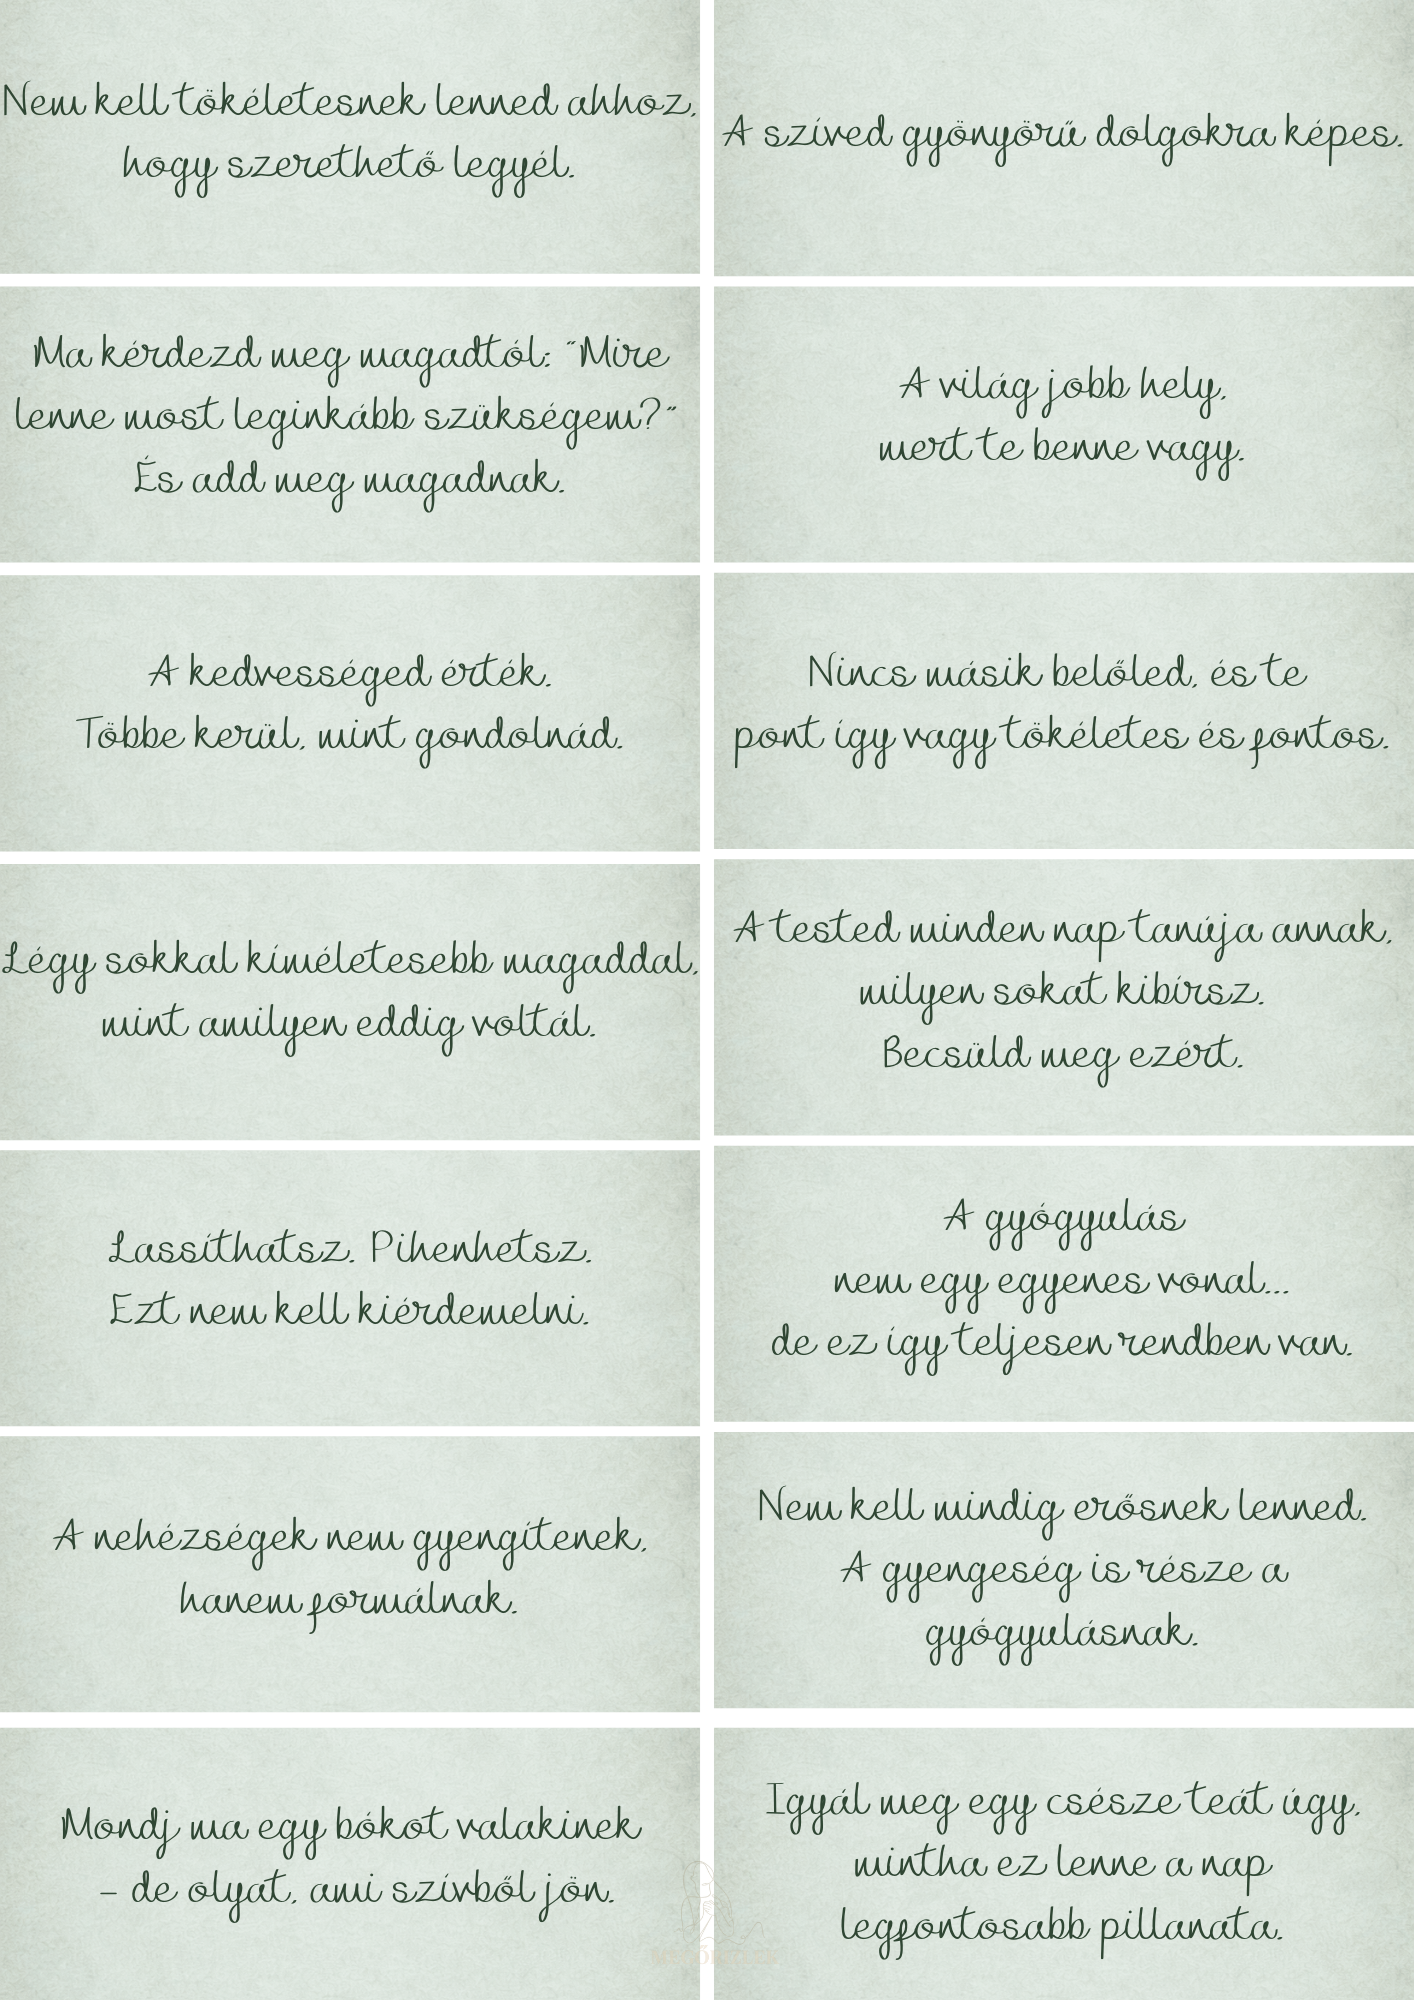 Nem kell tökéletesnek lenned ahhoz,
hogy szerethető legyél.
A szíved gyönyörű dolgokra képes.
Ma kérdezd meg magadtól: "Mire
lenne most leginkább szükségem?"
És add meg magadnak.
A világ jobb hely,
mert te benne vagy.
A kedvességed érték.
Többe kerül, mint gondolnád.
Nincs másik belőled, és te
pont így vagy tökéletes és fontos.
Légy sokkal kíméletesebb magaddal,
mint amilyen eddig voltál.
A tested minden nap tanúja annak,
milyen sokat kibírsz.
Becsüld meg ezért.
Lassíthatsz. Pihenhetsz.
Ezt nem kell kiérdemelni.
A gyógyulás
nem egy egyenes vonal...
de ez így teljesen rendben van.
A nehézségek nem gyengítenek,
hanem formálnak.
Nem kell mindig erősnek lenned.
A gyengeség is része a
gyógyulásnak.
Mondj ma egy bókot valakinek
– de olyat, ami szívből jön.
Igyál meg egy csésze teát úgy,
mintha ez lenne a nap
legfontosabb pillanata.